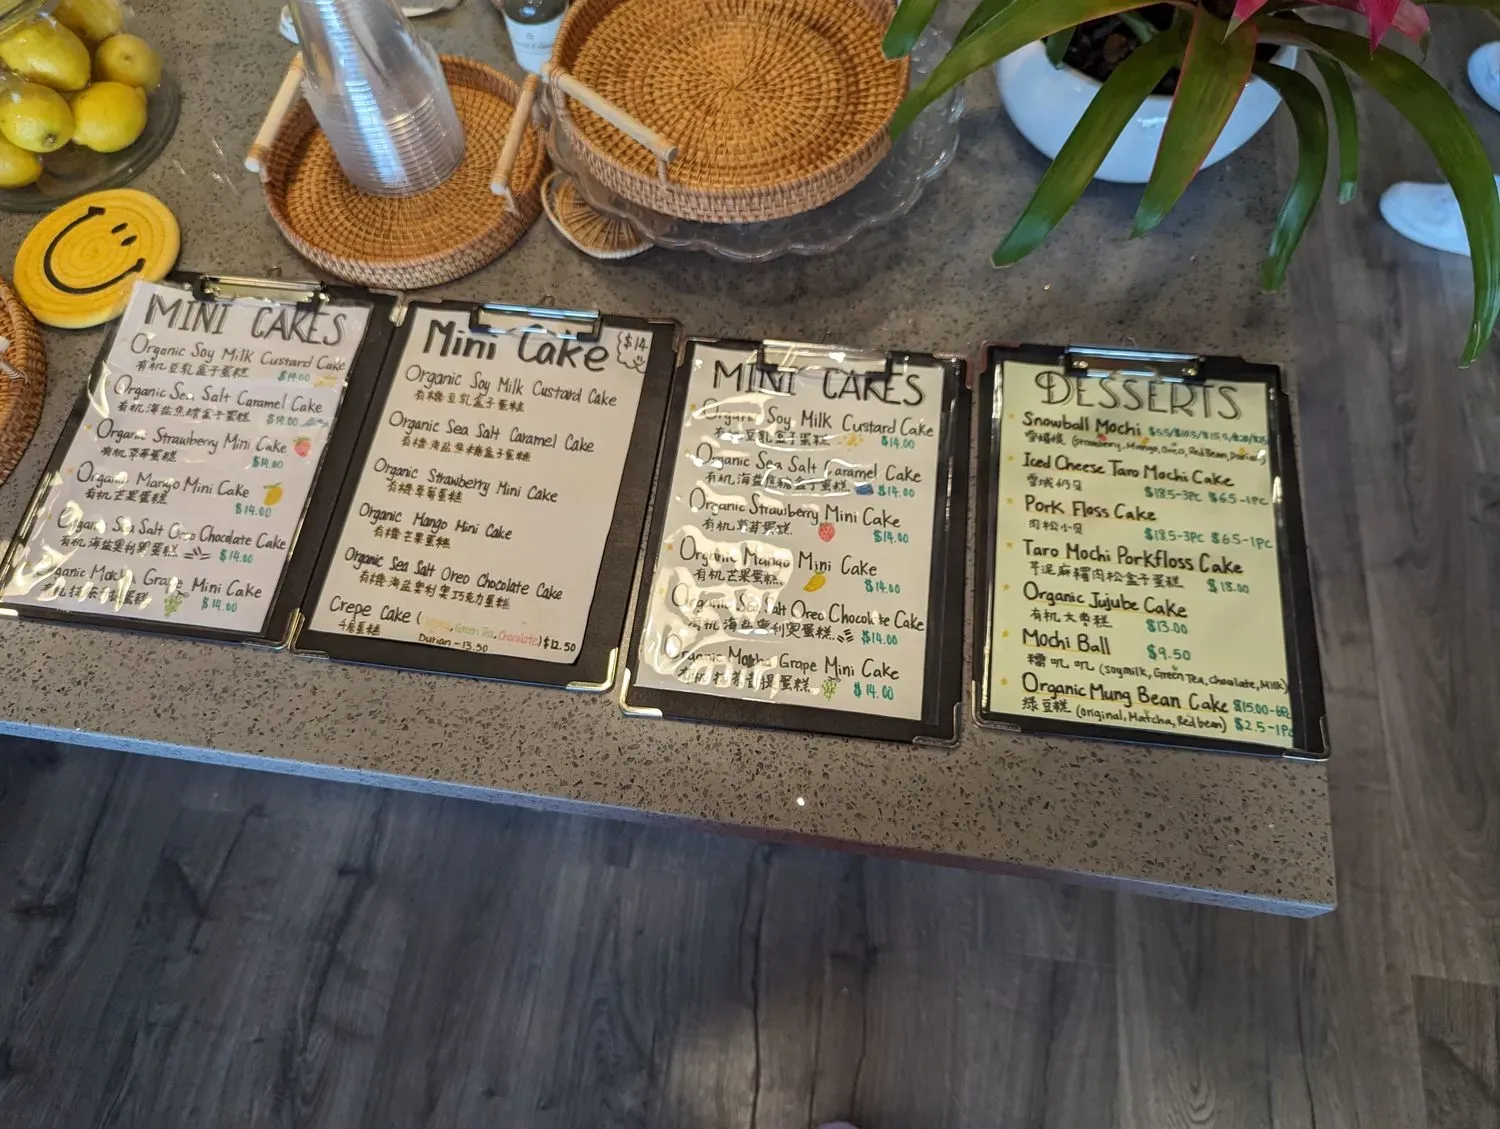 MINI CAKES
Organic Soy Milk Custard Cake
有机豆乳盒子蛋糕 $14.00
Organic Sea Salt Caramel Cake
有机海盐焦糖盒子蛋糕 $14.00
Organic Strawberry Mini Cake
有机草莓蛋糕 $14.00
Organic Mango Mini Cake
有机芒果蛋糕 $14.00
Organic Sea Salt Oreo Chocolate Cake
有机海盐奥利奥蛋糕 $14.00
Organic Matcha Grape Mini Cake
$14.00
Mini Cake
$14
Organic Soy Milk Custard Cake
有機豆乳盒子蛋糕
Organic Sea Salt Caramel Cake
有機海盐焦糖盒子蛋糕
Organic Strawberry Mini Cake
有機草莓蛋糕
Organic Mango Mini Cake
有機芒果蛋糕
Organic Sea Salt Oreo Chocolate Cake
有機海盐奥利奥巧克力蛋糕
Crepe Cake (Green Tea, Chocolate) $12.50
千层蛋糕 Durian - 13.50
MINI CAKES
Organic Soy Milk Custard Cake
有机豆乳盒子蛋糕 $14.00
Organic Sea Salt Caramel Cake
有机海盐焦糖盒子蛋糕 $14.00
Organic Strawberry Mini Cake
有机草莓蛋糕 $14.00
Organic Mango Mini Cake
有机芒果蛋糕 $14.00
Organic Sea Salt Oreo Chocolate Cake
有机海盐奥利奥蛋糕 $14.00
Organic Matcha Grape Mini Cake
有机抹茶青提蛋糕 $14.00
DESSERTS
Snowball Mochi $5.5/$10.5/$15.5/$20/$25
(Strawberry, Mango, Oreo, Red Bean, Durian)
Iced Cheese Taro Mochi Cake
雪域奶贝 $18.5-3pc $6.5-1pc
Pork Floss Cake
肉松小贝 $18.5-3pc $6.5-1pc
Taro Mochi Porkfloss Cake
芋泥麻糬肉松盒子蛋糕 $18.00
Organic Jujube Cake
有机大枣糕 $13.00
Mochi Ball $9.50
糯叽叽 (Soymilk, Green Tea, Chocolate, Milk)
Organic Mung Bean Cake $15.00-6pc
绿豆糕 (original, Matcha, Redbean) $2.5-1pc